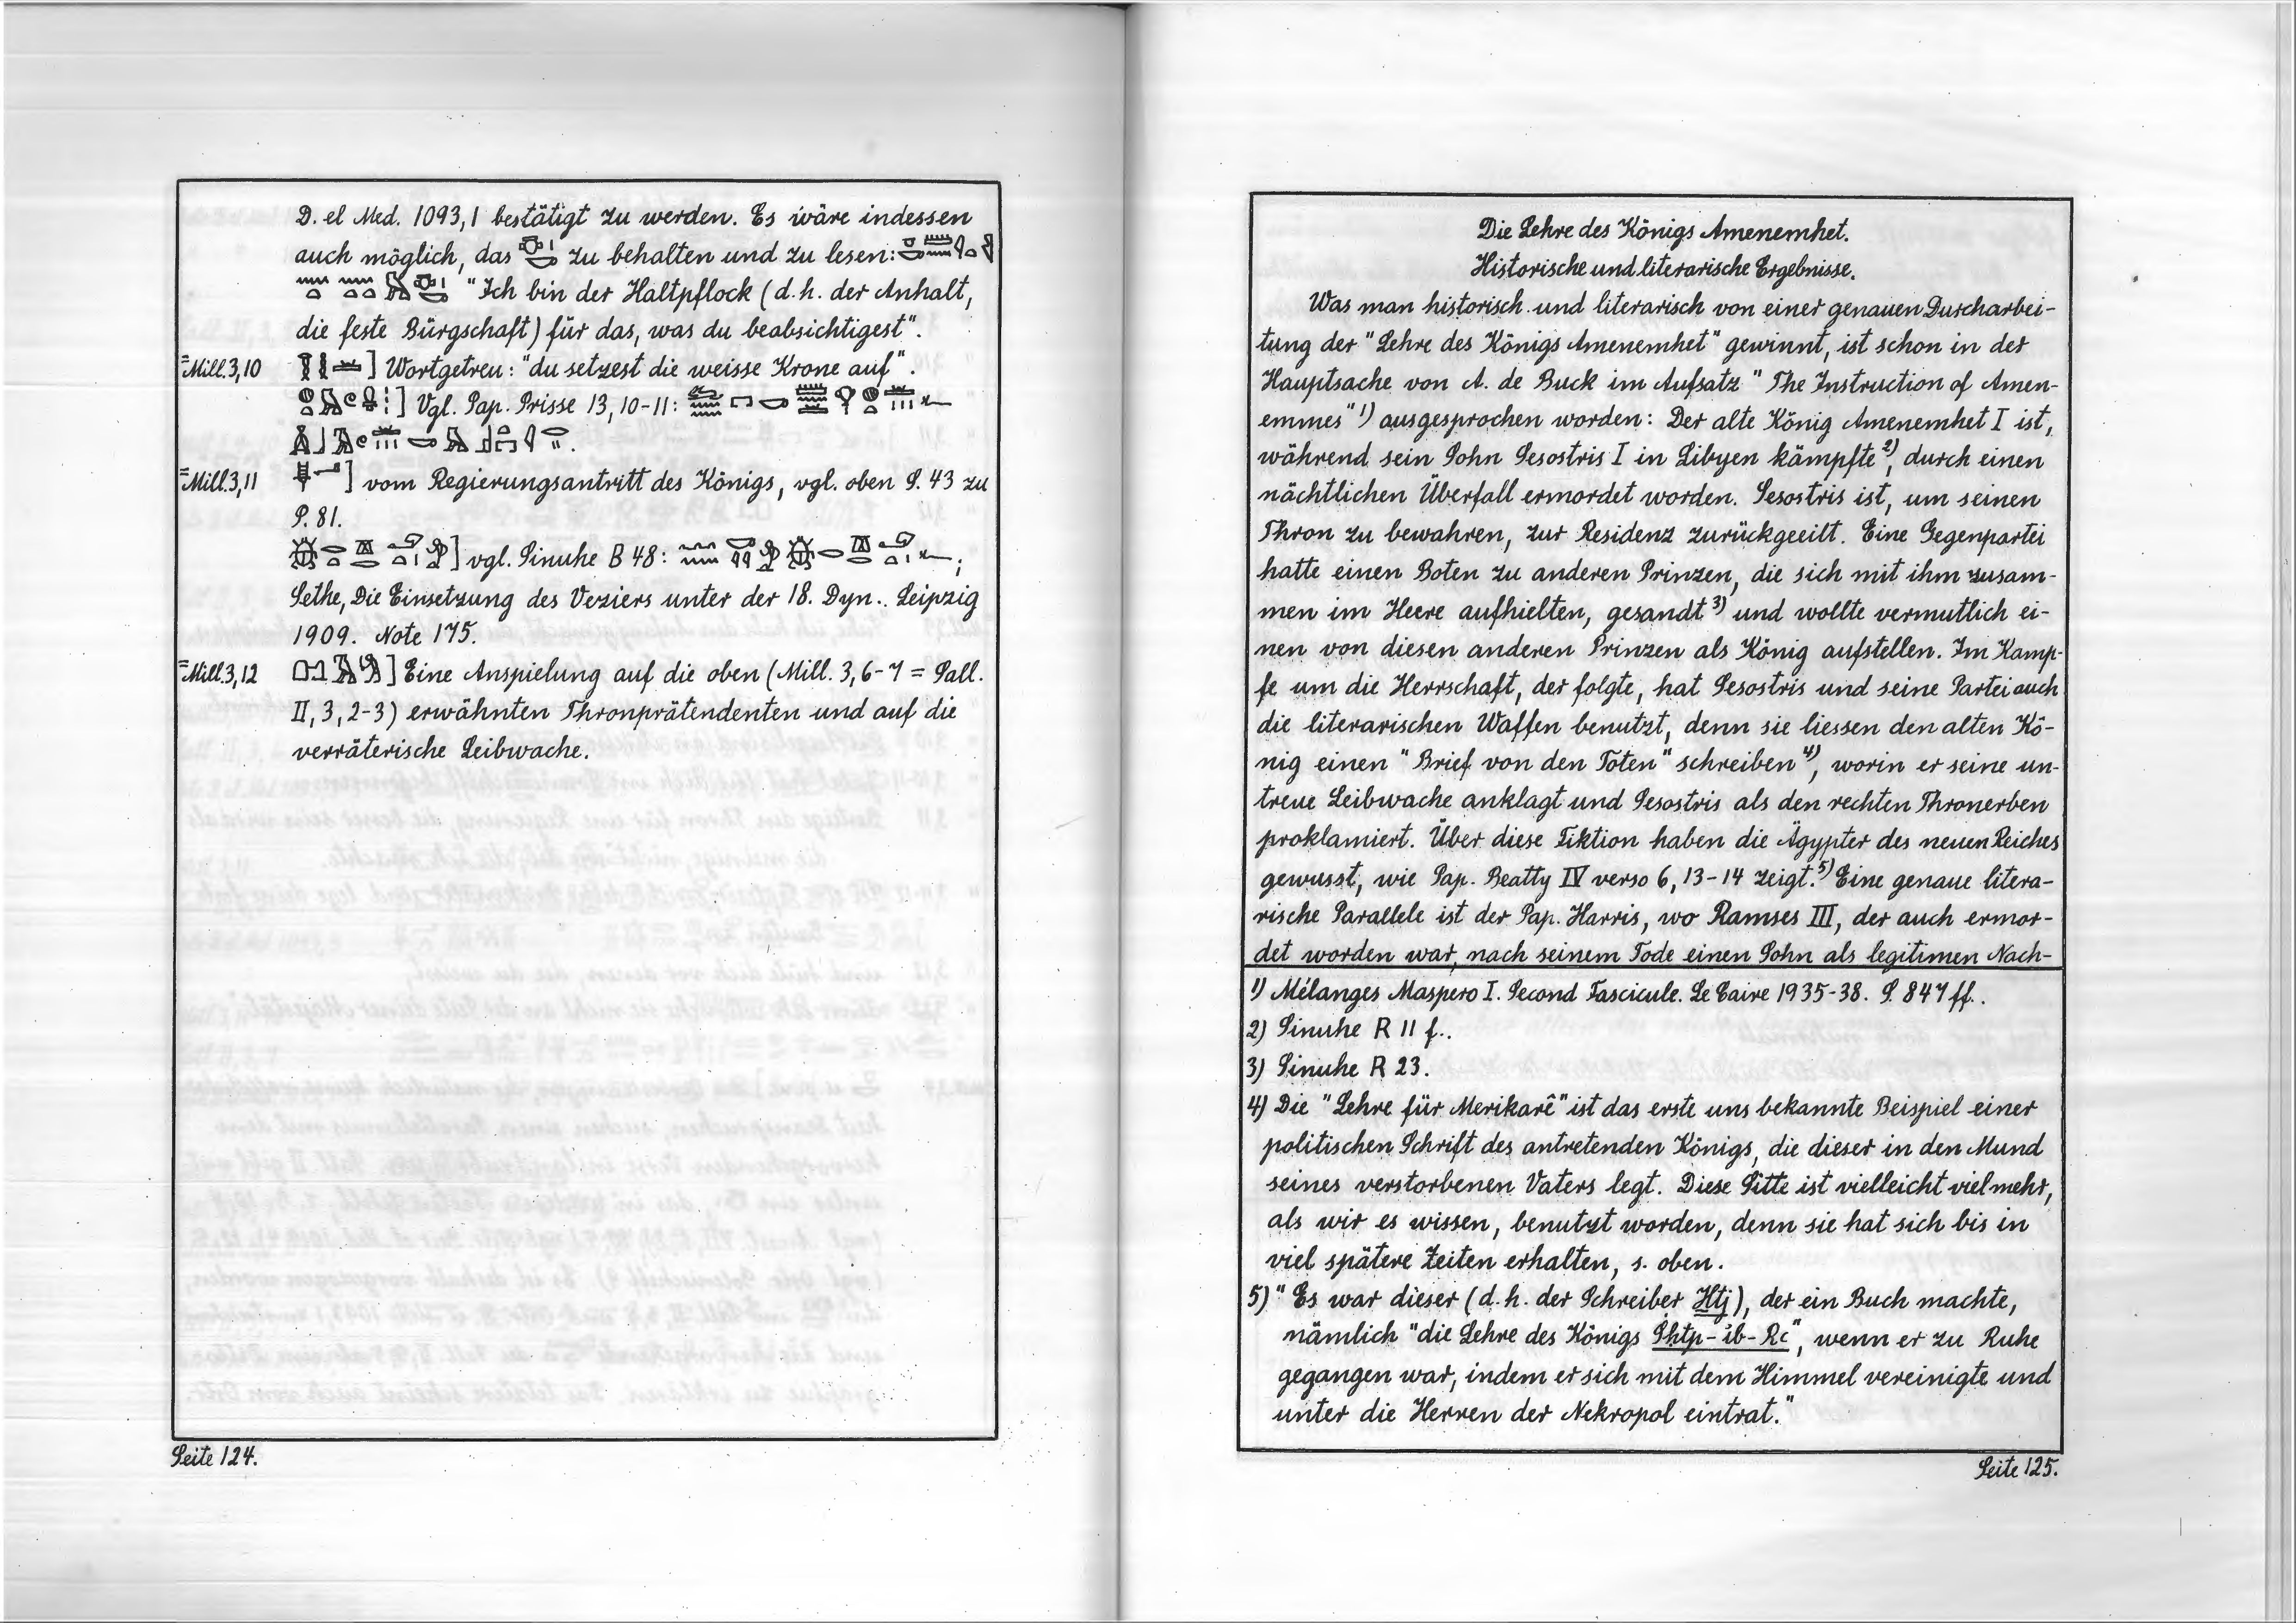 D. el Med. 1093,1 bestätigt zu werden. Es wäre indessen
auch möglich, das zu behalten und zu lesen:
"Ich bin der Haltpflock (d.h. der Anhalt,
die feste Bürgschaft) für das, was du beabsichtigest".
=Mill.3,10 ] Wortgetreu: "du setzest die weisse Krone auf".
] Vgl. Pap. Prisse 13, 10-11:
=Mill.3,11 ] vom Regierungsantritt des Königs, vgl. oben S. 43 zu
S. 81.
] vgl. Sinuhe B 48: ;
Sethe, Die Einsetzung des Veziers unter der 18. Dyn.. Leipzig
1909. Note 175.
=Mill.3,12 ] Eine Anspielung auf die oben (Mill. 3,6-7 = Sall.
II, 3, 2-3) erwähnten Thronprätendenten und auf die
verräterische Leibwache.
Seite 124.
Die Lehre des Königs Amenemhet.
Historische und literarische Ergebnisse.
Was man historisch und literarisch von einer genauen Durcharbei-
tung der "Lehre des Königs Amenemhet" gewinnt, ist schon in der
Hauptsache von A. de Buck im Aufsatz "The Instruction of Amen-
emmes" 1) ausgesprochen worden: Der alte König Amenemhet I ist,
während sein Sohn Sesostris I in Libyen kämpfte 2), durch einen
nächtlichen Überfall ermordet worden. Sesostris ist, um seinen
Thron zu bewahren, zur Residenz zurückgeeilt. Eine Gegenpartei
hatte einen Boten zu anderen Prinzen, die sich mit ihm zusam-
men im Heere aufhielten, gesandt 3) und wollte vermutlich ei-
nen von diesen anderen Prinzen als König aufstellen. Im Kamp-
fe um die Herrschaft, der folgte, hat Sesostris und seine Partei auch
die literarischen Waffen benutzt, denn sie liessen den alten Kö-
nig einen "Brief von den Toten" schreiben 4), worin er seine un-
treue Leibwache anklagt und Sesostris als den rechten Thronerben
proklamiert. Über diese Fiktion haben die Ägypter des neuen Reiches
gewusst, wie Pap. Beatty IV verso 6, 13-14 zeigt. 5) Eine genaue litera-
rische Parallele ist der Pap. Harris, wo Ramses III, der auch ermor-
det worden war, nach seinem Tode einen Sohn als legitimen Nach-
1) Mélanges Maspero I. Second Fascicule. Le Caire 1935-38. S. 847 ff..
2) Sinuhe R 11 f..
3) Sinuhe R 23.
4) Die "Lehre für Merikarê" ist das erste uns bekannte Beispiel einer
politischen Schrift des antretenden Königs, die dieser in den Mund
seines verstorbenen Vaters legt. Diese Sitte ist vielleicht viel mehr,
als wir es wissen, benutzt worden, denn sie hat sich bis in
viel spätere Zeiten erhalten, s. oben.
5) "Es war dieser (d.h. der Schreiber Ḫtj), der ein Buch machte,
nämlich "die Lehre des Königs Sḥtp-ib-Rc", wenn er zu Ruhe
gegangen war, indem er sich mit dem Himmel vereinigte und
unter die Herren der Nekropol eintrat."
Seite 125.